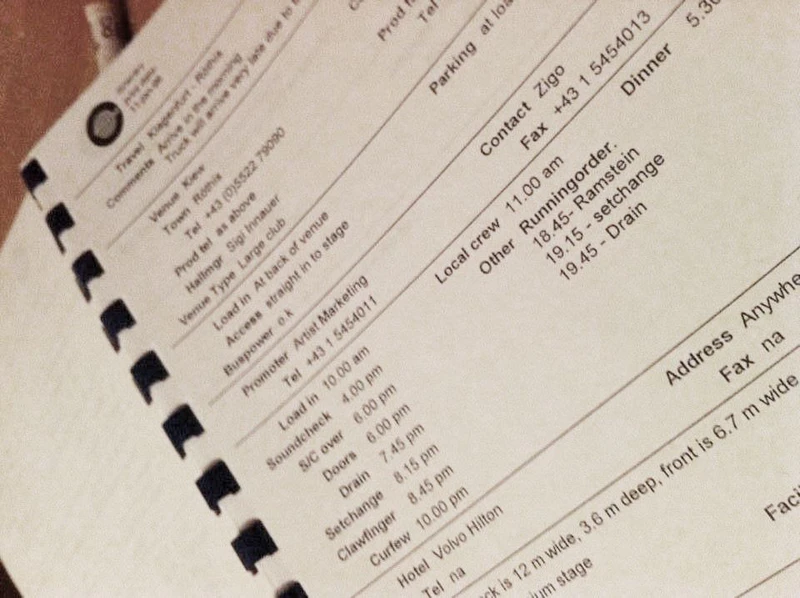 Travel Klagenfurt - Röthis
Comments Arrive in the morning
Truck will arrive very late due to
Venue Kiew
Town Röthis
Tel +43 (0)5522 79090
Prod tel as above
Hallmgr Sigi Innauer
Venue Type Large club
Prod
Tel
Parking at loa
Load in At back of venue
Access straight in to stage
Buspower o.k
Contact Zigo
Fax +43 1 5454013
Promoter Artist Marketing
Tel +43 1 5454011
Dinner 5.30
Load in 10.00 am
Soundcheck 4.00 pm
S/C over 6.00 pm
Doors 6.00 pm
Drain 7.45 pm
Setchange 8.15 pm
Clawfinger 8.45 pm
Curfew 10.00 pm
Local crew 11.00 am
Other Runningorder.
18.45- Ramstein
19.15 - setchange
19.45 - Drain
Hotel Volvo Hilton
Tel na
Address Anywhe
Fax na
ck is 12 m wide, 3.6 m deep, front is 6.7 m wide
ium stage
Facil